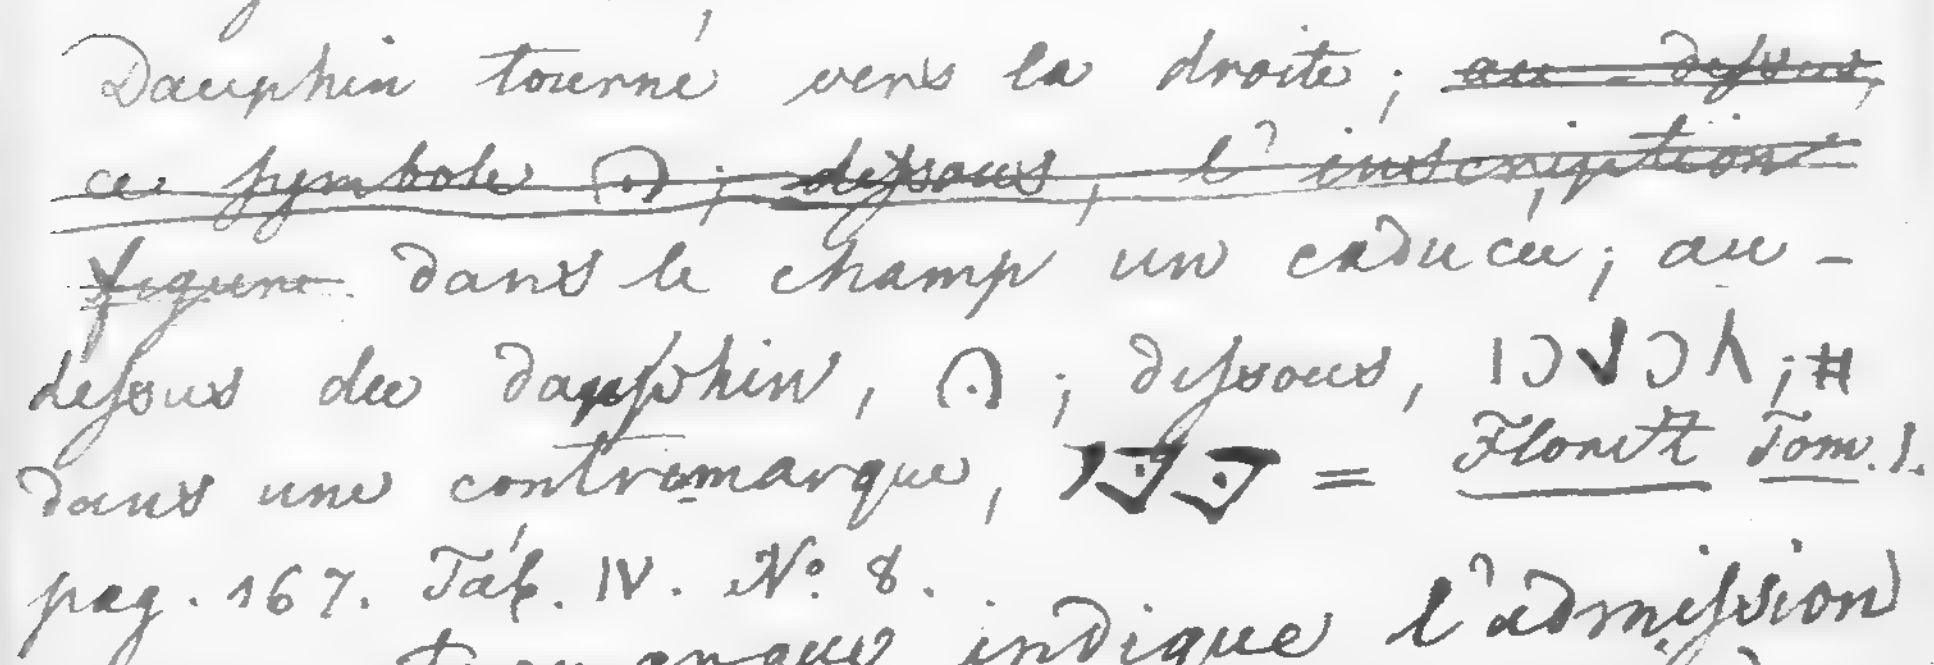 Dauphin tourné vers la droite; au-dessous,
ce symbole ; dessous, l'inscription
figure dans le champ un caducée; au-
dessous du dauphin, ; dessous, ; #
dans une contremarque, = Florett Tom. I.
pag. 167. Tab. IV. N.º 8.
indique l'admission